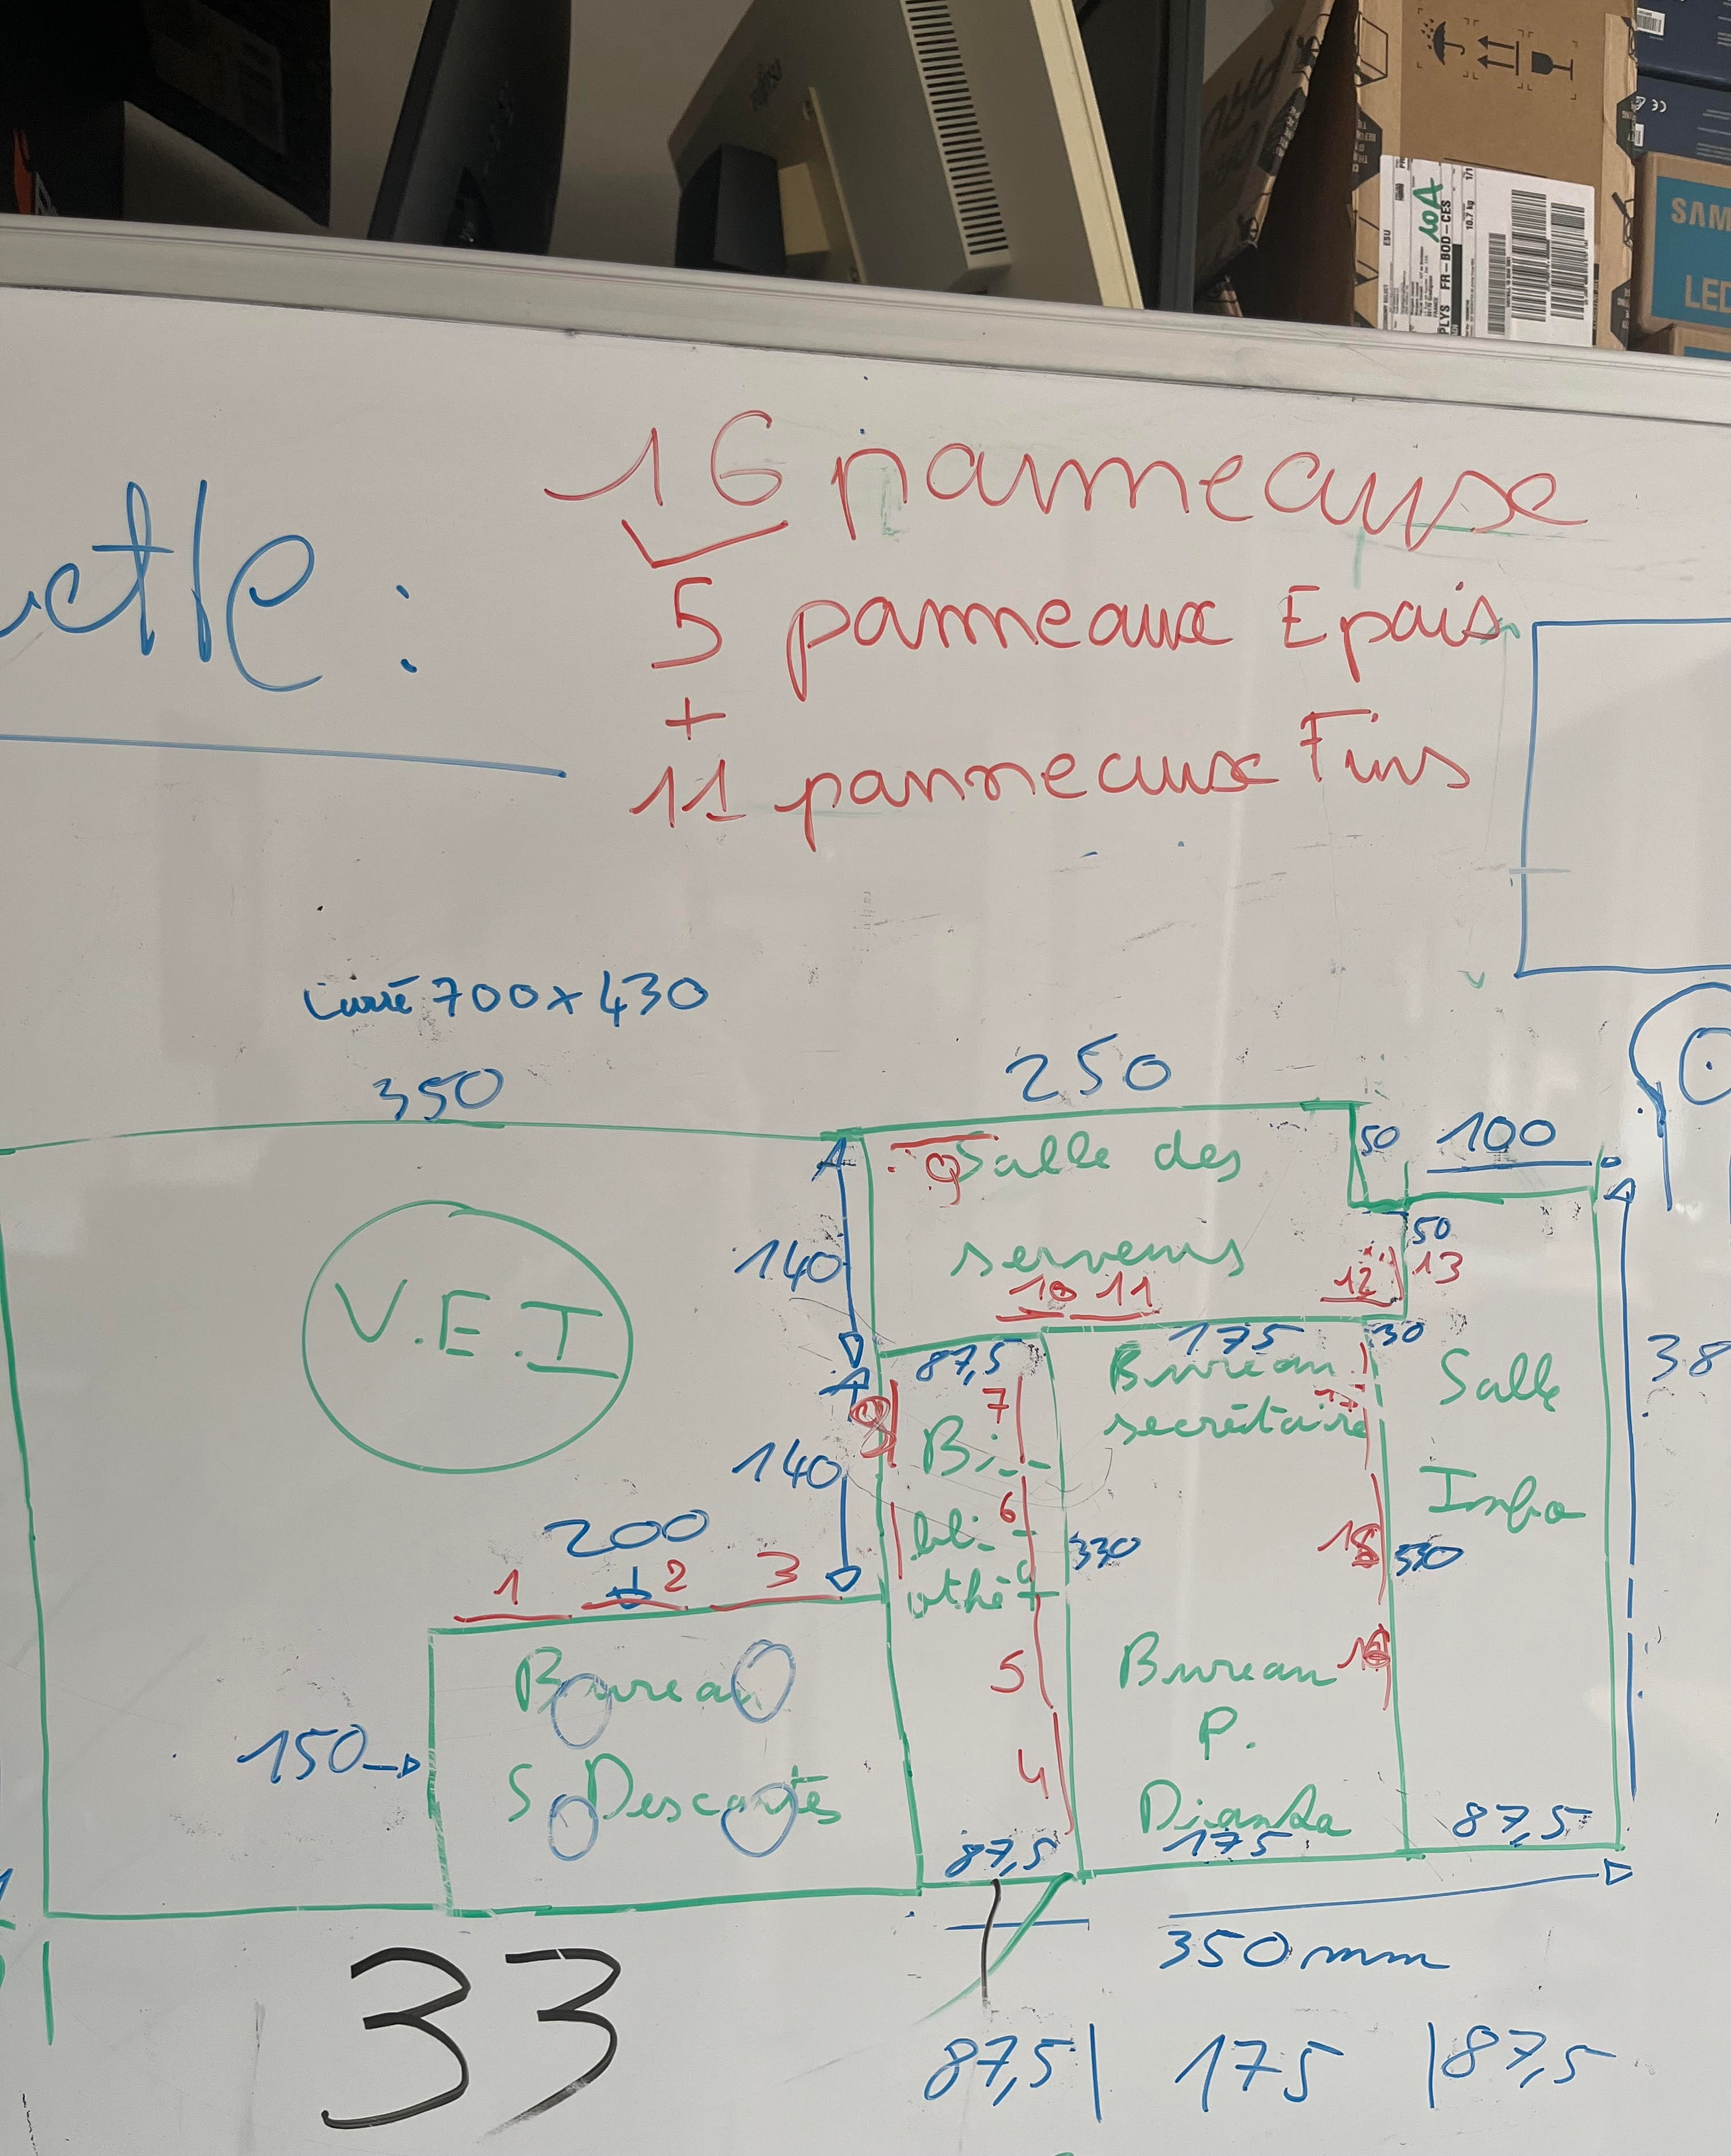 16 panneaux
5 panneaux Epais
+
11 panneaux Fins
700 x 430
350
250
50
100
9
Salle des
serveurs
50
10 11
12
13
140
V.E.I
87,5
175
30
Bureau
secrétaire
Salle
Info
38
7
Bi-
140
6
bli-
othè
200
1
2
3
330
15
330
5
Bureau
S Descartes
150
4
Bureau
P.
87,5
175
87,5
350 mm
33
87,5 | 175 | 87,5
FR-BOD-CES
10.7 kg
1/1
10A
SAM
LED